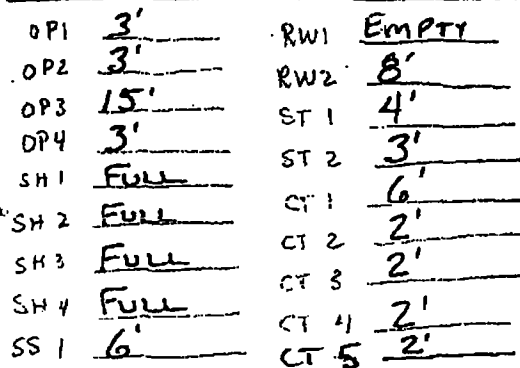 OP1 3'
OP2 3'
OP3 15'
OP4 3'
SH 1 FULL
SH 2 FULL
SH 3 FULL
SH 4 FULL
SS 1 6'
RW1 EMPTY
RW2 8'
ST 1 4'
ST 2 3'
CT 1 6'
CT 2 2'
CT 3 2'
CT 4 2'
CT 5 2'